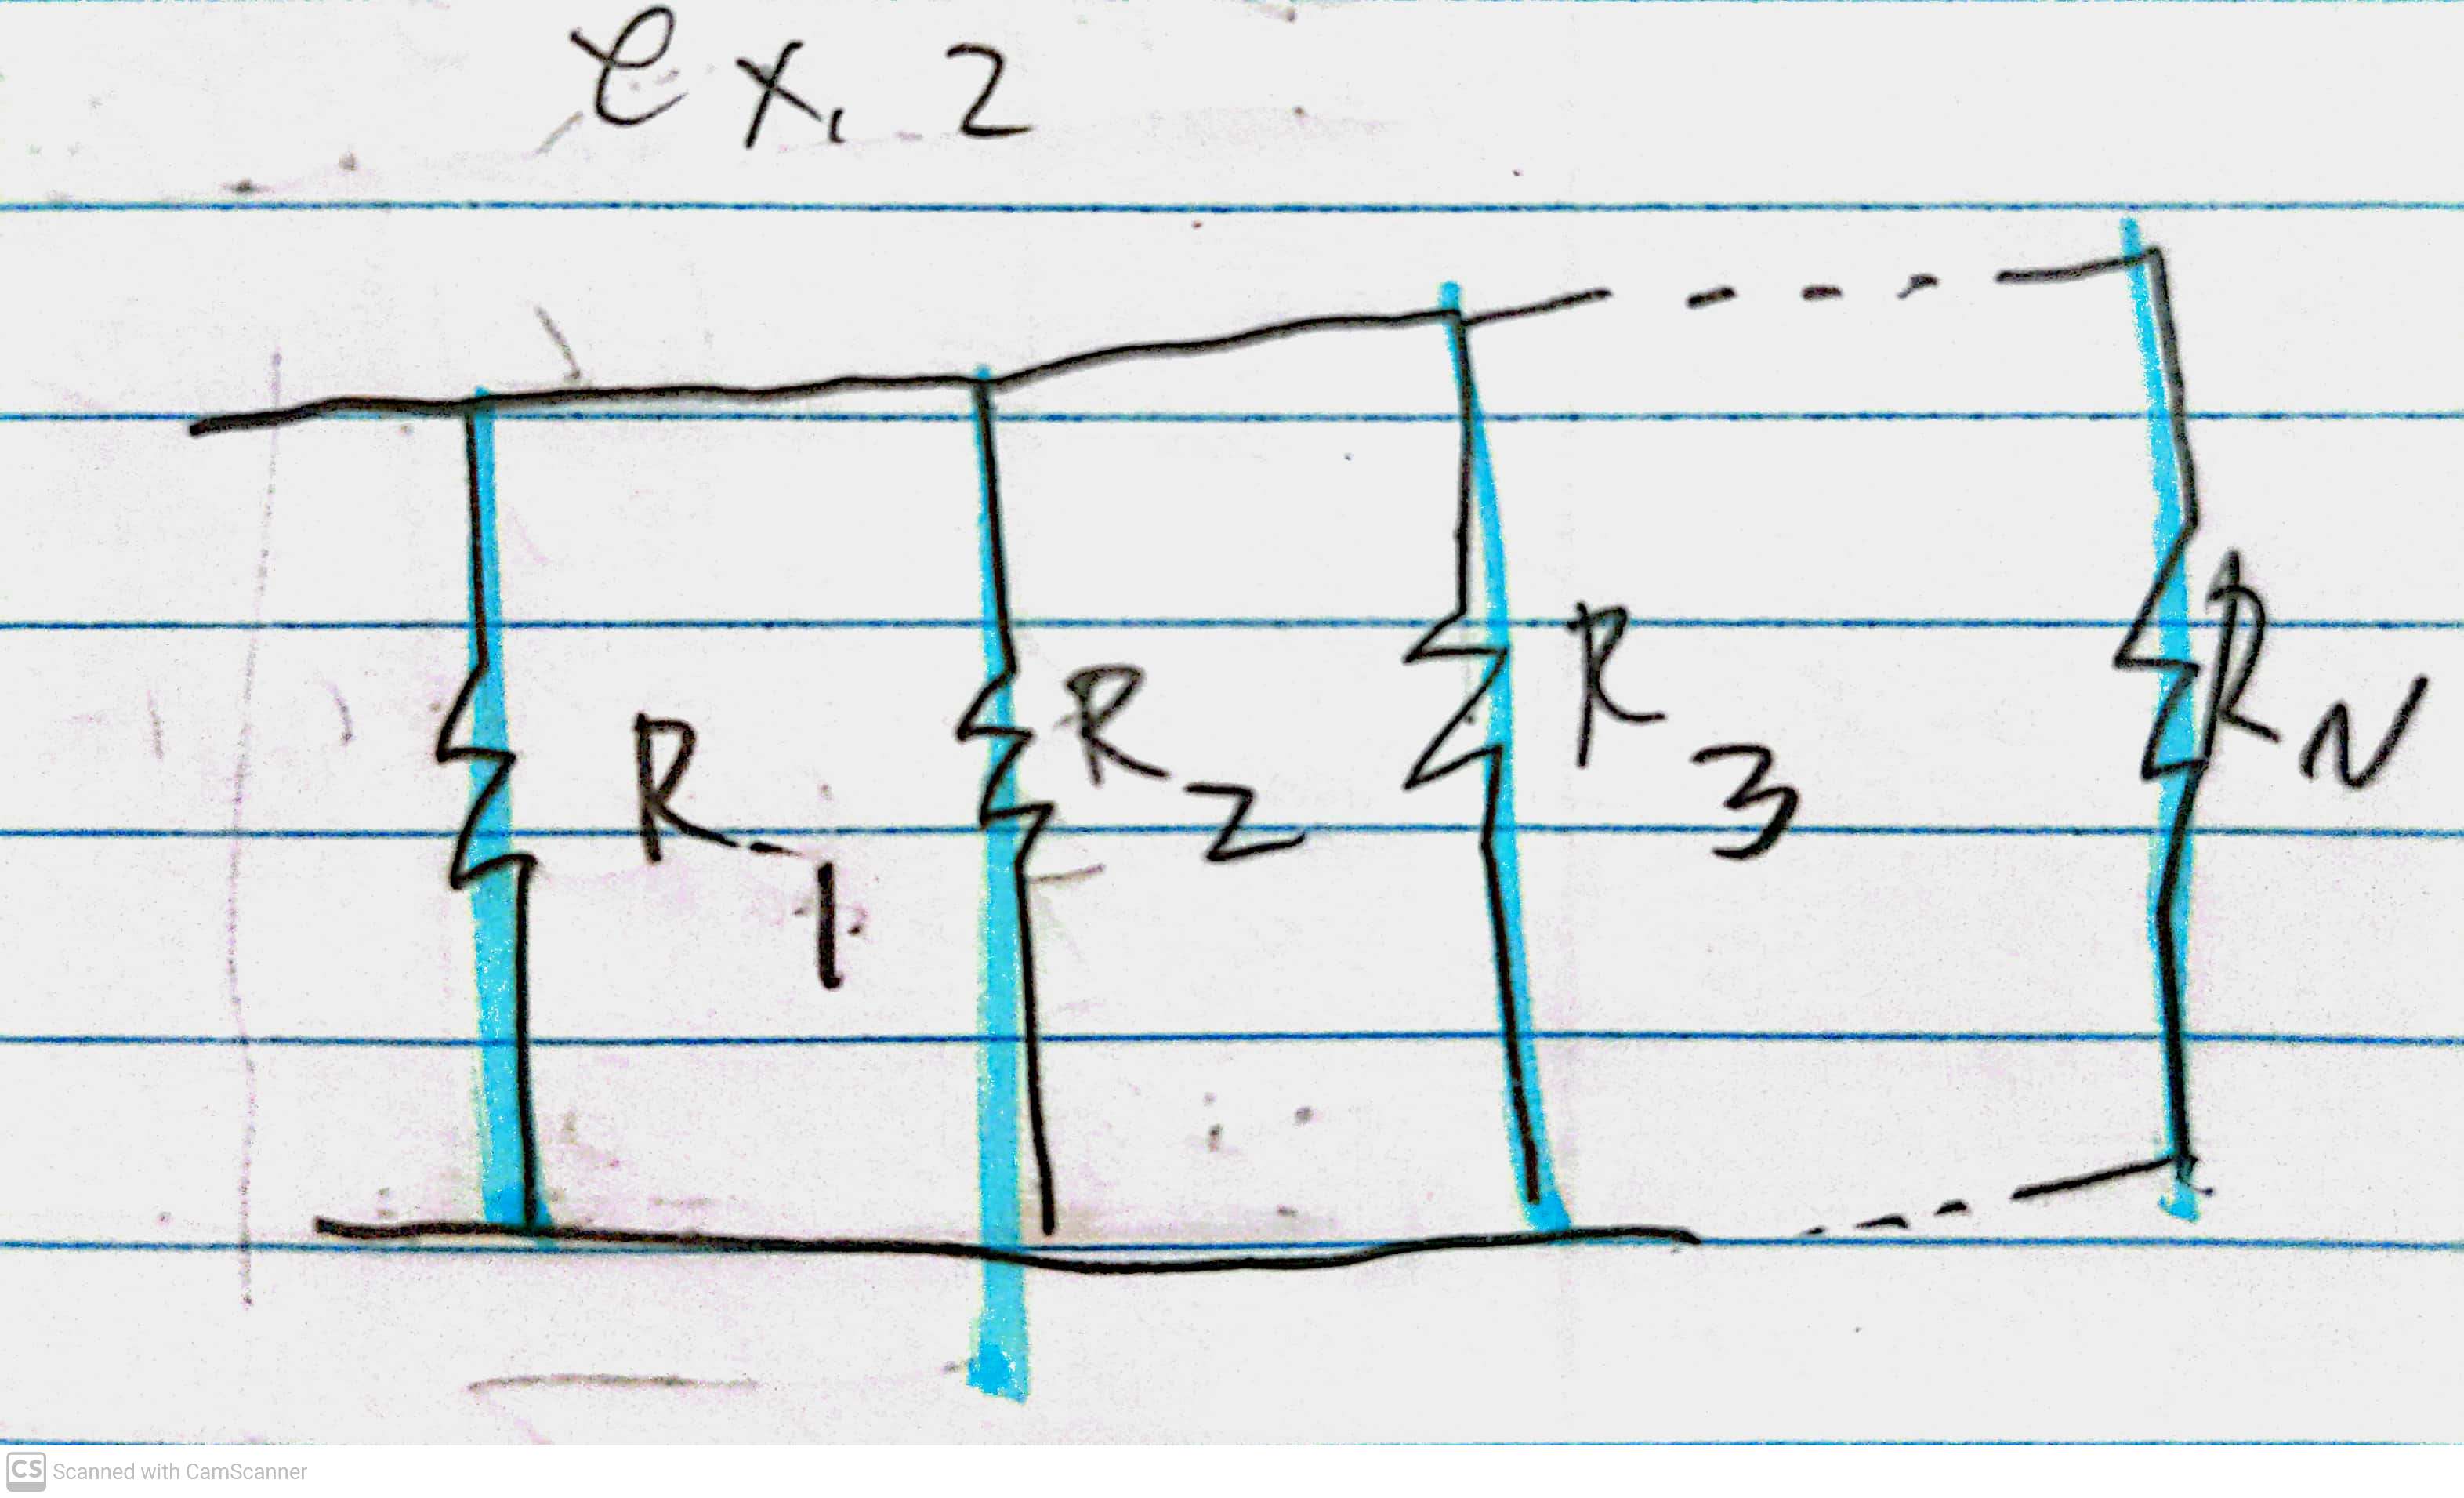 ex. 2
R1
R2
R3
RN
CS Scanned with CamScanner